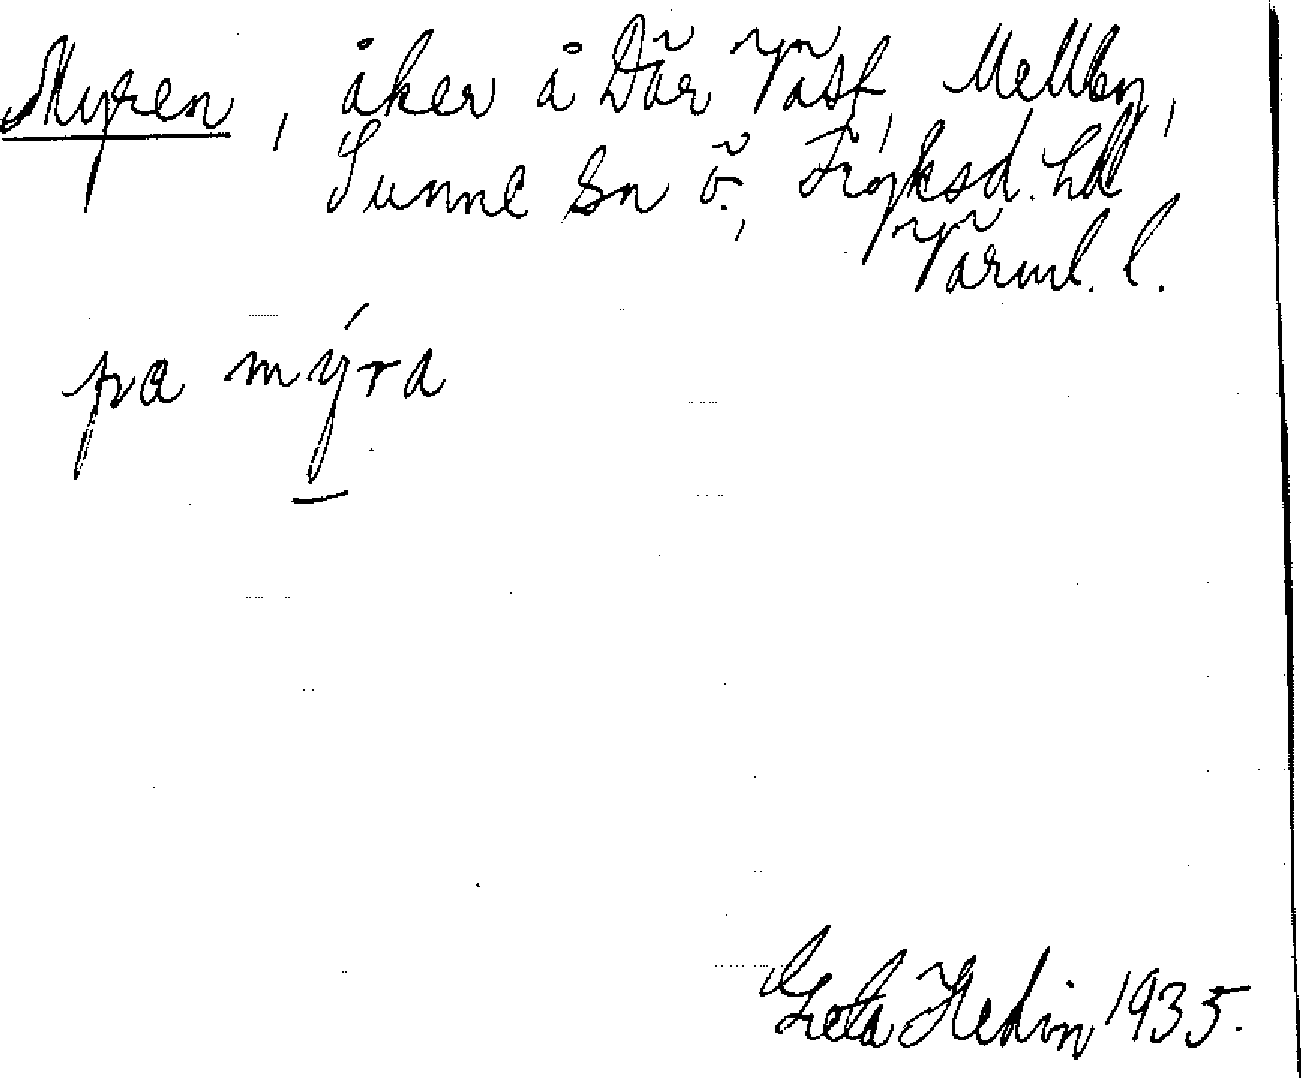 Myren, åker å Där Väst, Mellby,
Sunne sn Ö., Fryksd. hd
Värml. l.
pa mýra
Greta Hedin 1935.